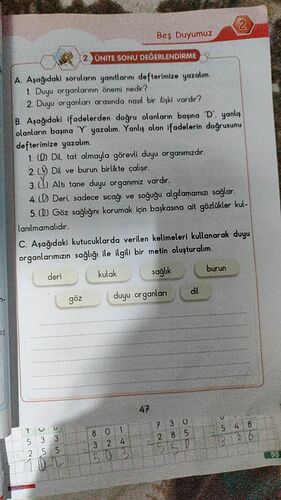 Beş Duyumuz
2
2. ÜNİTE SONU DEĞERLENDİRME
A. Aşağıdaki soruların yanıtlarını defterimize yazalım.
1. Duyu organlarının önemi nedir?
2. Duyu organları arasında nasıl bir ilişki vardır?
B. Aşağıdaki ifadelerden doğru olanların başına "D", yanlış
olanların başına "Y" yazalım. Yanlış olan ifadelerin doğrusunu
defterimize yazalım.
1. (D) Dil, tat almayla görevli duyu organımızdır.
2. (Y) Dil ve burun birlikte çalışır.
3. (Y) Altı tane duyu organımız vardır.
4. (D) Deri, sadece sıcağı ve soğuğu algılamamızı sağlar.
5. (D) Göz sağlığını korumak için başkasına ait gözlükler kul-
lanılmamalıdır.
C. Aşağıdaki kutucuklarda verilen kelimeleri kullanarak duyu
organlarımızın sağlığı ile ilgili bir metin oluşturalım.
deri kulak sağlık burun
göz duyu organları dil
47
5 3 3 8 0 1 7 3 0 5 4 8
2 5 5 3 2 4 2 8 5
55